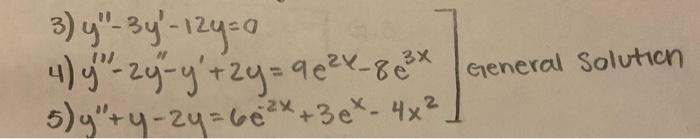 3) y''-3y'-12y=0
4) y'''-2y''-y'+2y=9e^{2x}-8e^{3x}
5) y''+y-2y=6e^{-2x}+3e^x-4x^2
General Solution